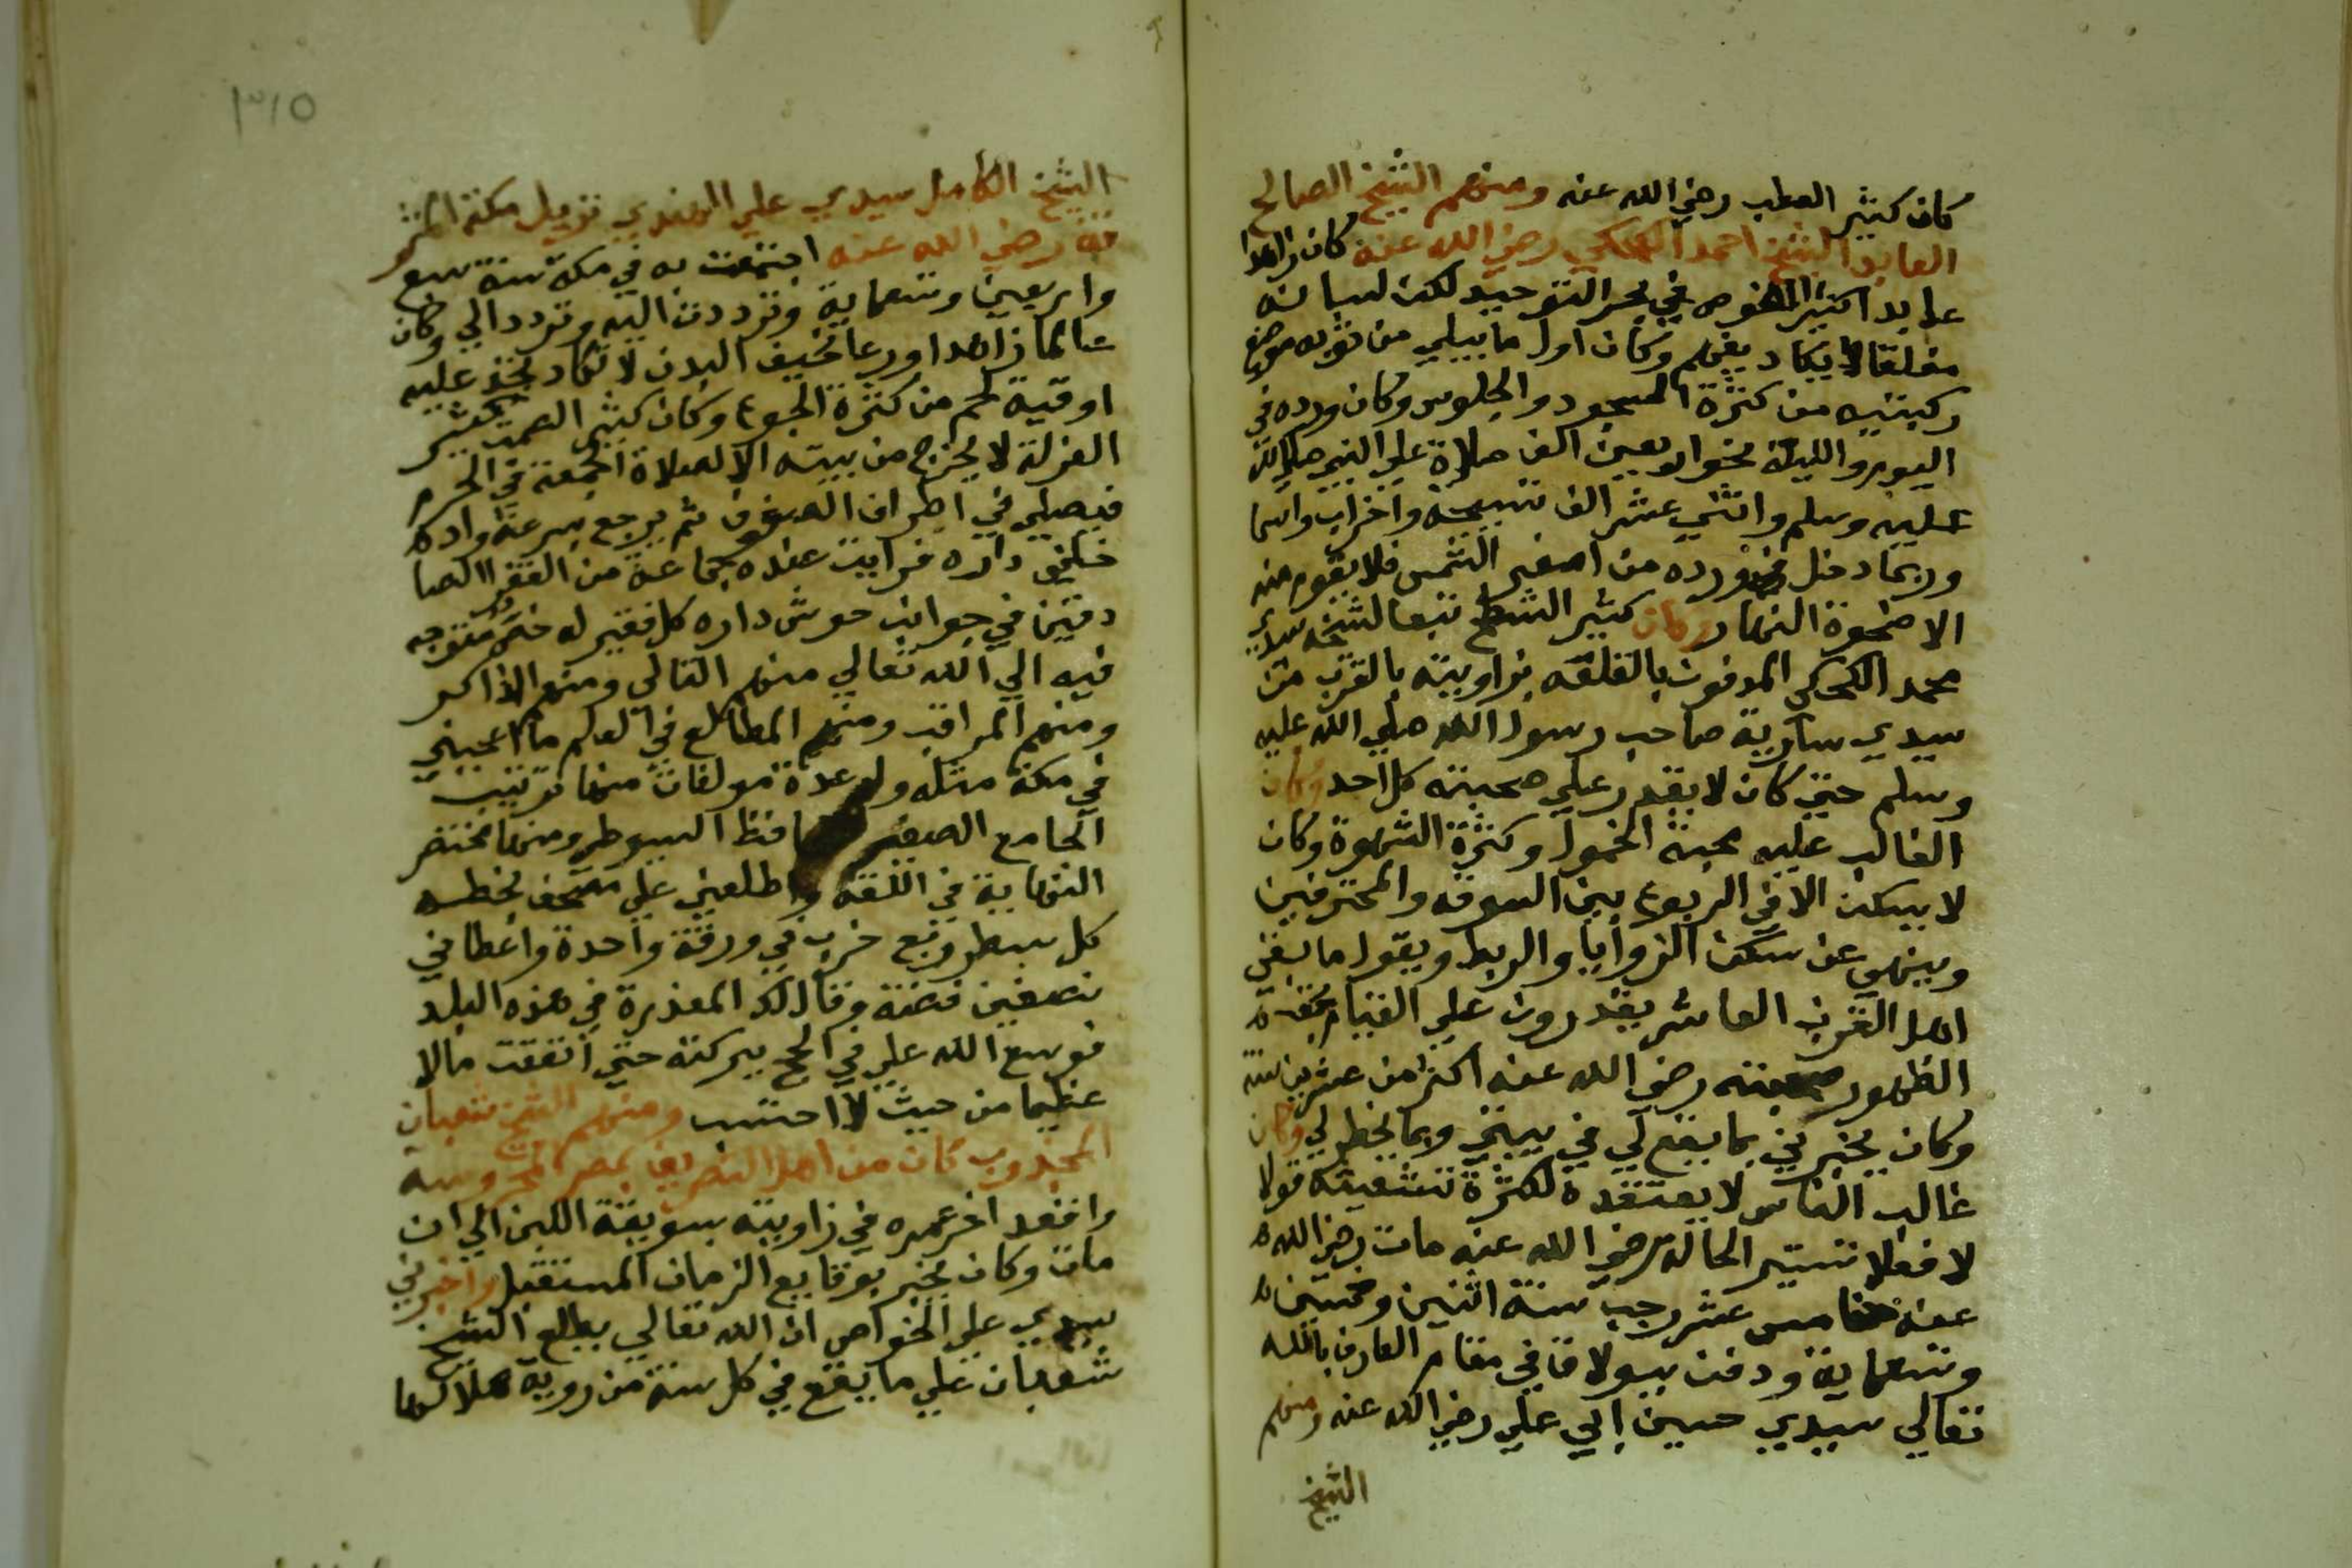 كان كثير العطب رضي الله عنه ومنهم الشيخ الصالح
العابد الشيخ احمد الكعكي رضي الله عنه كان زاهدا
عابدا كثير الغوص في بحر التوحيد لكن لسانه
مغلقا لا يكاد يفهم وكان اول ما يبلي من ثوبه موضع
ركبتيه من كثرة السجود والجلوس وكان ورده في
اليوم والليلة نحو اربعين الف صلاة علي النبي صلي الله
عليه وسلم واثني عشر الف تسبيحة واحزاب واسما
وربما دخل في ورده من اصفر الشمس فلا يقوم منه
الا ضحوة النهار وكان كثير الشطح تبعا لشيخه سيدي
محمد الكعكي المدفون بالقلعة بزاويته بالقرب من
سيدي سارية صاحب رسول الله صلي الله عليه
وسلم حتي كان لا يقدر علي صحبته كل احد وكان
الغالب عليه محبة الخمول وكثرة الشهوة وكان
لا يسكن الا في الربوع بين السوقه والمحترفين
وينهي عن سكن الزوايا والربط ويقول ما بقي
اهل القرن العاشر يقدرون علي القيام بحقه
الظهور صحبته رضي الله عنه اكثر من عشرين سنه
وكان يخبرني بما يقع لي في بيتي وبما يخطر لي وكان
غالب الناس لا يعتقده لكثرة تشعيثه قولا
لا فعلا تستير الحاله رضي الله عنه مات رضي الله
عنه خامس عشر رجب سنة اثنين وخمسين
وتسعماية ودفن ببولاق في مقام العارف بالله
تعالي سيدي حسين ابي علي رضي الله عنه ومنهم
الشيخ
٣١٥
الشيخ الكامل سيدي علي الهندي نزيل مكة المشر
فة رضي الله عنه اجتمعت به في مكة سنة سبع
واربعين وتسعماية وترددت اليه وتردد الي وكان
عالما زاهدا ورعا نحيف البدن لا تكاد تجد عليه
اوقية لحم من كثرة الجوع وكان كثير الصمت كثير
العزلة لا يخرج من بيته الا لصلاة الجمعة في الحرم
فيصلي في اطراف الصفوف ثم يرجع بسرعة وادخلـ
ـني داره فرايت عنده جماعة من الفقرا الصا
دقين في جوانب حوش داره كل فقير له خص متوجه
فيه الي الله تعالي منهم التالي ومنهم الذاكر
ومنهم المراقب ومنهم المطالع في العلم ما اعجبني
في مكة مثله وله عدة مولفات منها ترتيب
الجامع الصغير للحافظ السيوطي ومنها مختصر
النهاية في اللغة واطلعني علي مصحف بخطه
كل سطر ربع حزب في ورقة واحدة واعطاني
نصفين فضة وقال لك المعذرة في هذه البلد
فوسع الله علي في الحج ببركته حتي انفقت مالا
عظيما من حيث لا احتسب ومنهم الشيخ شعبان
المجذوب كان من اهل التصريف بمصر المحروسه
واقعد اخر عمره في زاويته بسويقة اللبن الي ان
مات وكان يخبر بوقايع الزمان المستقبل واخبرني
سيدي علي الخواص ان الله تعالي يطلع الشيخ
شعبان علي ما يقع في كل سنة من روية هلالها